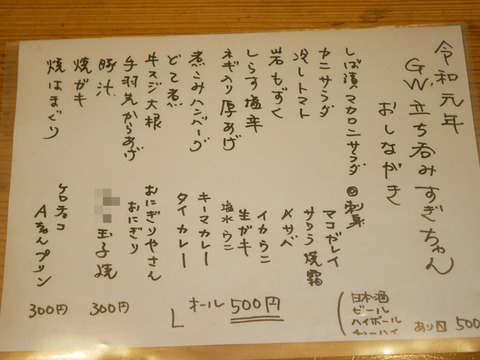 令和元年
GW 立ち呑みすぎちゃん
おしながき
しば漬マカロニサラダ
カニサラダ
冷しトマト
岩もずく
しらす塩辛
ネギ入り厚あげ
煮こみハンバーグ
どて煮
牛スジ大根
手羽先からあげ
豚汁
焼ガキ
焼はまぐり
◎刺身
マコガレイ
サワラ焼霜
〆サバ
イカウニ
生ガキ
塩水ウニ
キーマカレー
タイカレー
おにぎりやさん
おにぎり
玉子焼
300円
ケロチョコ
Aちゃんプリン
300円
オール 500円
日本酒
ビール
ハイボール
チューハイ
500